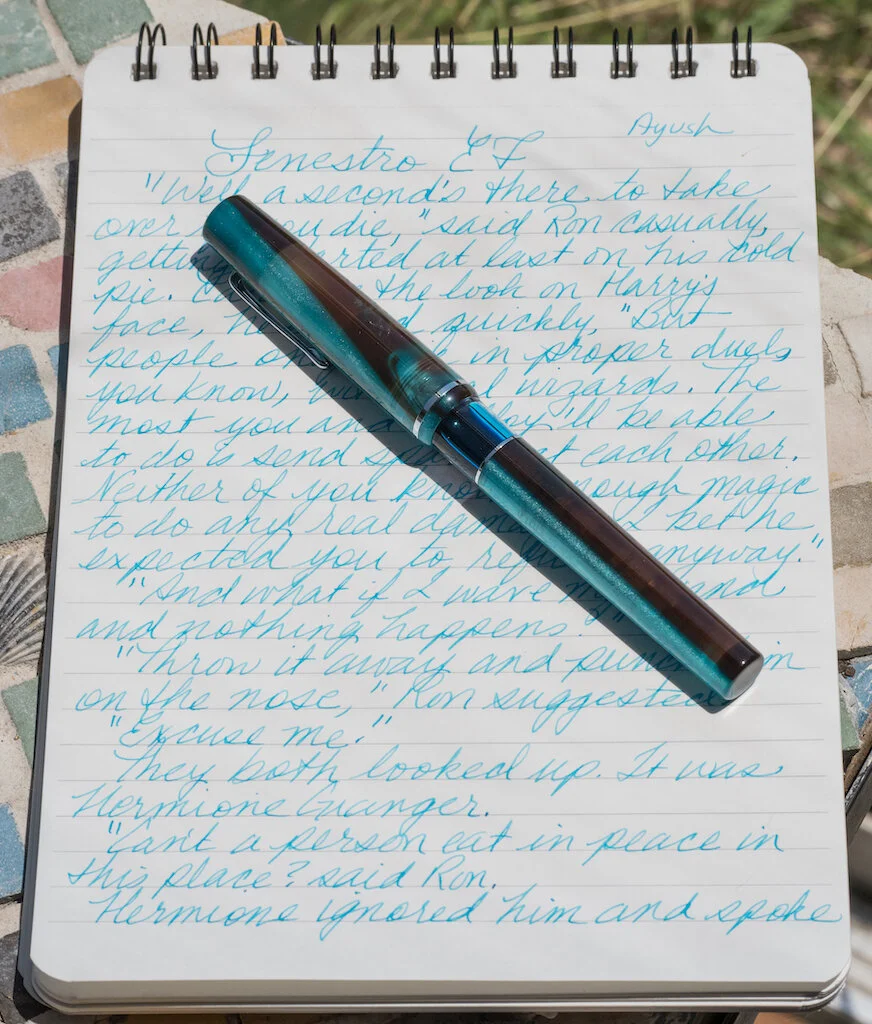 Ayush
Senestro EF
"Well a second's there to take
over you die," said Ron casually,
getting rted at last on his cold
pie. the look on Harry's
face, quickly, "But
people in proper duels
you know, wizards. The
most you and 'll be able
to do is send each other.
Neither of you know nough magic
to do any real I bet he
expected you to anyway."
"And what if I wave my and
and nothing happens.
"Throw it away and punch im
on the nose," Ron suggested.
"Excuse me."
They both looked up. It was
Hermione Guanger.
"Can't a person eat in peace in
this place? said Ron.
Hermione ignored him and spoke